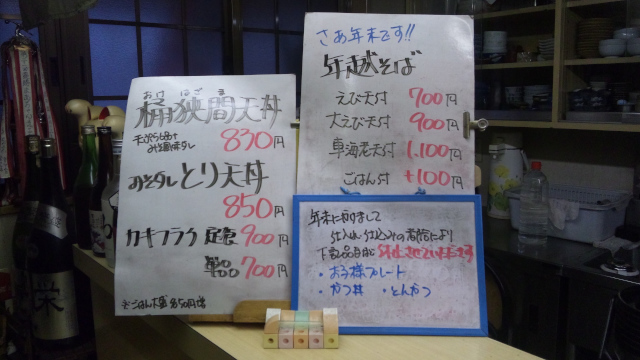 おけはざま
桶狭間天丼
830円
みそダレとり天丼
850円
カキフライ 定食 900円
単品 700円
さあ年末です!!
年越そば
えび天付 700円
大えび天付 900円
車海老天付 1,100円
ごはん付 +100円
年末に向けまして
下記品目は
・お子様プレート
・かつ丼 ・とんかつ
栄